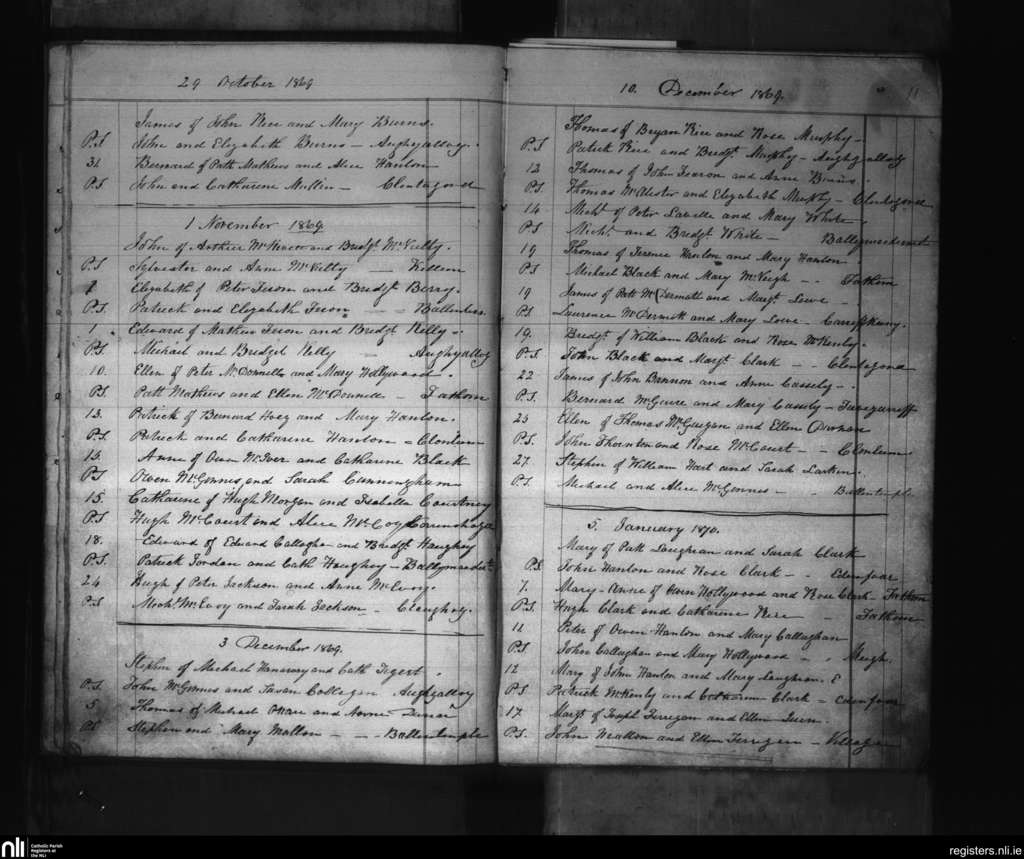 29 October 1869
James of John Rice and Mary Burns.
P.S John and Elizabeth Burns - Aughyallog.
31 Bernard of Patt Mathews and Alice Hanlon
P.S John and Catharine Mullin - Clontagond
1 November 1869
John of Arthur and Bridgt. McVielty.
P.S Sylvester and Anne McVilty - Killeen
Elizabeth of Peter and Bridgt Berry.
P.S. Patrick and Elizabeth - -
1 Edward of Mathew and Bridgt Kelly -
P.S Michael and Bridget Kelly - Aughyallog
10. Ellen of Peter McDonnell and Mary Hollywood .
PS. Patt Mathews and Ellen McDonnell - Fathom
13. Patrick of Bernard and Mary Hanlon.
P.S. Patrick and Catharine Hanlon - Clonlum
13. Anne of Owen McIver and Catharine Black
PS Owen McGonnes and Sarah Cunningham
15. Catharine of Hugh Morgan and Isabella Courtney
P.S Hugh McCourt and Alice McCoy
18. Edward of Edward Callaghan and Bridgt Haughey
P.S. Patrick Jordan and Cath Haughey -
24 Hugh of Peter Jackson and Anne McEvoy.
P.S Michl. McEvoy and Sarah Jackson - Cloughog.
3 December 1869.
Stephen of Michael and Cath
P.S. John McGonnes and Susan Collegan Aughyallog
5 Thomas of Michael and
P.S Stephen and Mary Mallon - - - Ballentemple
10. December 1869.
11
Thomas of Bryan Rice and Rose Murphy -
P.S Patrick Rice and Bridgt. Murphy - Aughyallog
12 Thomas of John Fearon and Anne Burns.
P.S. Thomas McAlester and Elizabeth Murphy - Clontagond
14. Michl. of Peter Lavelle and Mary White .
P.S Michl. and Bridgt. White -
19 Thomas of Terence Hanlon and Mary Hanlon .
P.S Michael Black and Mary McVeigh - - Fathom
19 James of Patt McDermott and Margt. Lowe -
P.S Laurence McDermott and Mary Lowe -
19. Bridgt. of William Black and Rose McKenty.
P.S. John Black and Margt. Clark - - Clontagond
22 James of John Bannon and Anne Cassely - .
P.S. Bernard McGuire and Mary Cassily -
25 Ellen of Thomas McGuigan and Ellen
P.S. John Thornton and Rose McCourt - - Clonlum
27. Stephen of William Hart and Sarah Larkin .
P.S. Michael and Alice McGonnes - - Ballentemple
5. January 1870.
Mary of Patt Laughran and Sarah Clark
P.S. John Hanlon and Rose Clark - - Edenfoar
7. Mary-Anne of Owen Hollywood and Rose Clark - Fathom
P.S. Hugh Clark and Catharine Rice - Fathom
11 Peter of Owen Hanlon and Mary Callaghan
P.S John Callaghan and Mary Hollywood - - Meigh.
12 Mary of John Hanlon and Mary Laughran.
P.S Patrick McKenty and Catharine Clark - Edenfoar
17. Margt. of Joseph Ferrigan and Ellen Quin.
P.S. John and Ellen Ferrigan -
nli
Catholic Parish
Registers at
the NLI
registers.nli.ie